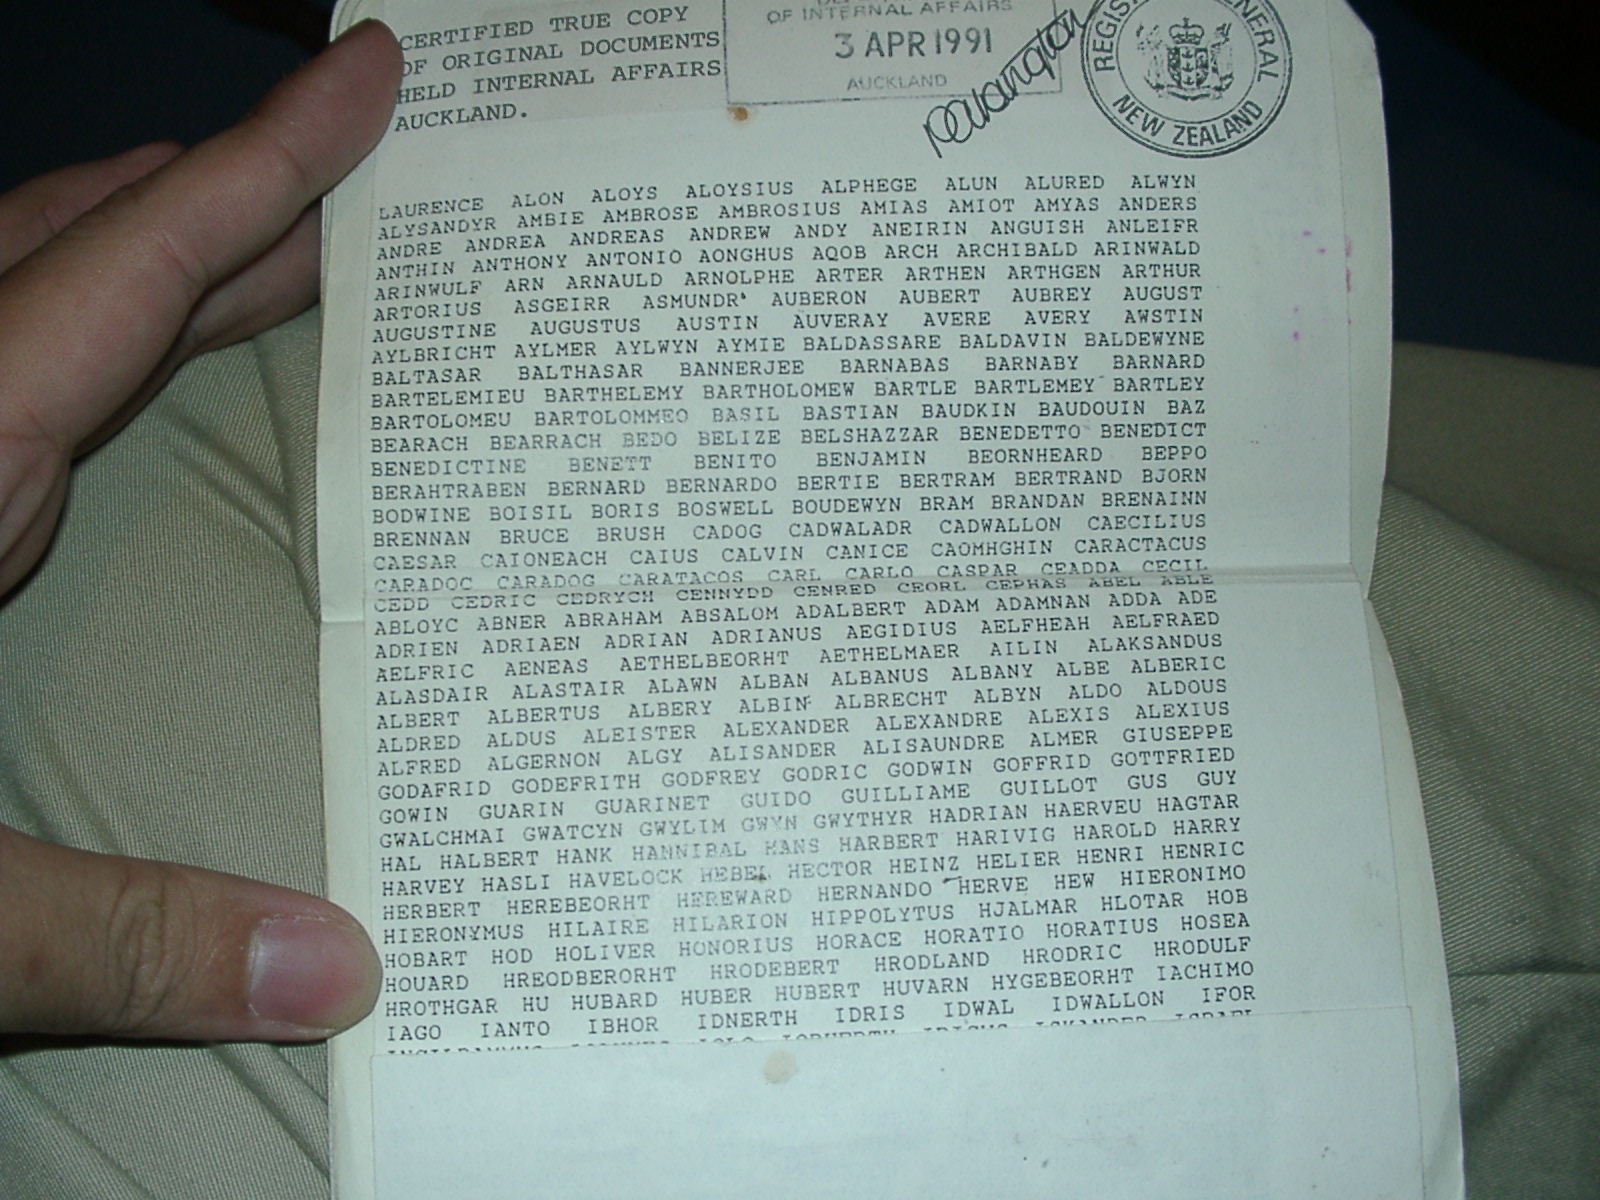 CERTIFIED TRUE COPY
OF ORIGINAL DOCUMENTS
HELD INTERNAL AFFAIRS
AUCKLAND.
OF INTERNAL AFFAIRS
3 APR 1991
AUCKLAND
NEW ZEALAND
LAURENCE ALON ALOYS ALOYSIUS ALPHEGE ALUN ALURED ALWYN
ALYSANDYR AMBIE AMBROSE AMBROSIUS AMIAS AMIOT AMYAS ANDERS
ANDRE ANDREA ANDREAS ANDREW ANDY ANEIRIN ANGUISH ANLEIFR
ANTHIN ANTHONY ANTONIO AONGHUS AQOB ARCH ARCHIBALD ARINWALD
ARINWULF ARN ARNAULD ARNOLPHE ARTER ARTHEN ARTHGEN ARTHUR
ARTORIUS ASGEIRR ASMUNDR AUBERON AUBERT AUBREY AUGUST
AUGUSTINE AUGUSTUS AUSTIN AUVERAY AVERE AVERY AWSTIN
AYLBRICHT AYLMER AYLWYN AYMIE BALDASSARE BALDAVIN BALDEWYNE
BALTASAR BALTHASAR BANNERJEE BARNABAS BARNABY BARNARD
BARTELEMIEU BARTHELEMY BARTHOLOMEW BARTLE BARTLEMEY BARTLEY
BARTOLOMEU BARTOLOMMEO BASIL BASTIAN BAUDKIN BAUDOUIN BAZ
BEARACH BEARRACH BEDO BELIZE BELSHAZZAR BENEDETTO BENEDICT
BENEDICTINE BENETT BENITO BENJAMIN BEORNHEARD BEPPO
BERAHTRABEN BERNARD BERNARDO BERTIE BERTRAM BERTRAND BJORN
BODWINE BOISIL BORIS BOSWELL BOUDEWYN BRAM BRANDAN BRENAINN
BRENNAN BRUCE BRUSH CADOG CADWALADR CADWALLON CAECILIUS
CAESAR CAIONEACH CAIUS CALVIN CANICE CAOMHGHIN CARACTACUS
CARADOC CARADOG CARATACOS CARL CARLO CASPAR CEADDA CECIL
CEDD CEDRIC CEDRYCH CENNYDD CENRED CEORL CEPHAS ABEL ABLE
ABLOYC ABNER ABRAHAM ABSALOM ADALBERT ADAM ADAMNAN ADDA ADE
ADRIEN ADRIAEN ADRIAN ADRIANUS AEGIDIUS AELFHEAH AELFRAED
AELFRIC AENEAS AETHELBEORHT AETHELMAER AILIN ALAKSANDUS
ALASDAIR ALASTAIR ALAWN ALBAN ALBANUS ALBANY ALBE ALBERIC
ALBERT ALBERTUS ALBERY ALBIN ALBRECHT ALBYN ALDO ALDOUS
ALDRED ALDUS ALEISTER ALEXANDER ALEXANDRE ALEXIS ALEXIUS
ALFRED ALGERNON ALGY ALISANDER ALISAUNDRE ALMER GIUSEPPE
GODAFRID GODEFRITH GODFREY GODRIC GODWIN GOFFRID GOTTFRIED
GOWIN GUARIN GUARINET GUIDO GUILLIAME GUILLOT GUS GUY
GWALCHMAI GWATCYN GWYLIM GWYN GWYTHYR HADRIAN HAERVEU HAGTAR
HAL HALBERT HANK HANNIBAL HANS HARBERT HARIVIG HAROLD HARRY
HARVEY HASLI HAVELOCK HEBEL HECTOR HEINZ HELIER HENRI HENRIC
HERBERT HEREBEORHT HEREWARD HERNANDO HERVE HEW HIERONIMO
HIERONYMUS HILAIRE HILARION HIPPOLYTUS HJALMAR HLOTAR HOB
HOBART HOD HOLIVER HONORIUS HORACE HORATIO HORATIUS HOSEA
HOUARD HREODBERORHT HRODEBERT HRODLAND HRODRIC HRODULF
HROTHGAR HU HUBARD HUBER HUBERT HUVARN HYGEBEORHT IACHIMO
IAGO IANTO IBHOR IDNERTH IDRIS IDWAL IDWALLON IFOR